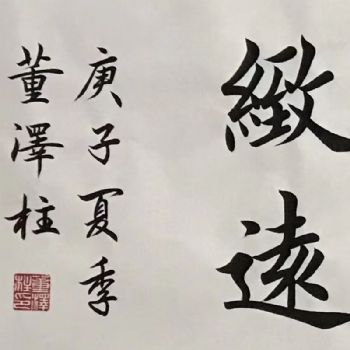 緻遠
庚子夏季
董澤柱
董澤柱印